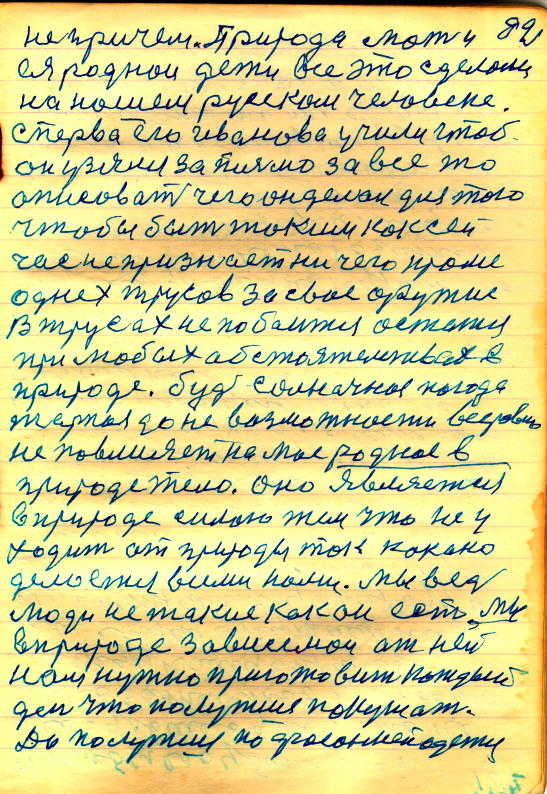 непричем. Природа мат и 82
ея роднои дети все это сделали
на нашем русском человеке.
сперва его Иванова учили чтоб
он узялся за письмо за все то
описоват чего он делал для того
чтобы быт таким как сей
час непризнает ни чего проме
однех трусов за свае оружие
В трусах не побоится остатся
при любых абстоятельствах в
природе. буд солнечная погода
жаркая до не возможности всеровно
не повлияет на мое родное в
природе тело. оно является
в природе силою тем что не у
ходит от природы так как оно
делается всеми нами. мы вед
люди не такие как он ест. мы
в природе зависемои от ней
нам нужно приготовит каждый
ден что получия покушат.
Да получия по фасонней одется